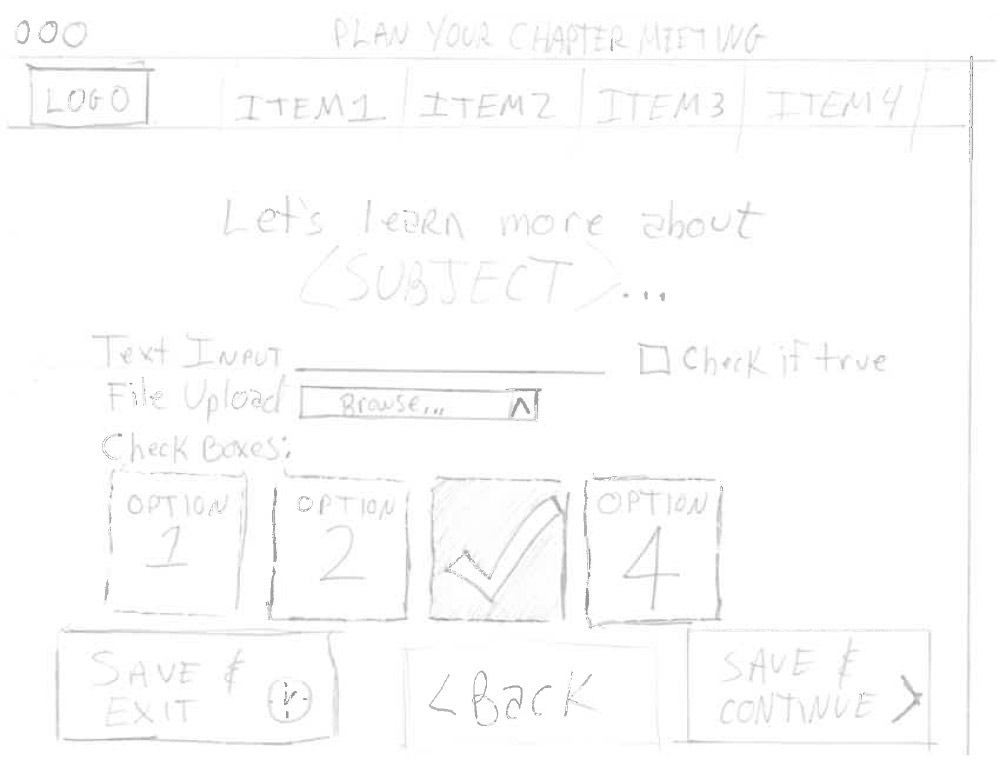 PLAN YOUR CHAPTER MEETING
LOGO
ITEM1
ITEM2
ITEM3
ITEM4
Let's learn more about
<SUBJECT>...
Text INPUT
Check if true
File Upload
Browse...
Check Boxes:
OPTION
1
OPTION
2
OPTION
4
SAVE &
EXIT
<Back
SAVE &
CONTINUE >